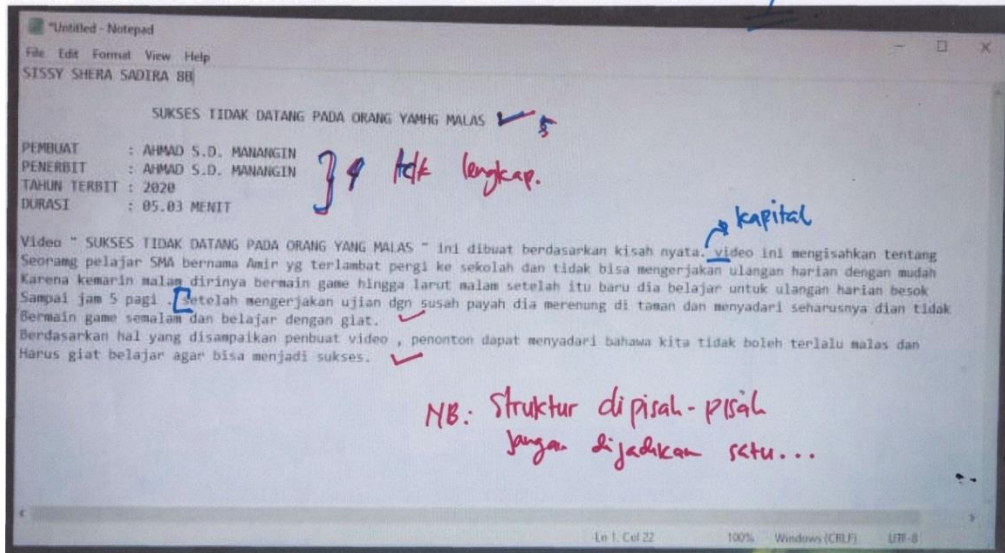 *Untitled - Notepad
File Edit Format View Help
SISSY SHERA SADIRA 8B
SUKSES TIDAK DATANG PADA ORANG YAMHG MALAS
5
PEMBUAT : AHMAD S.D. MANANGIN
PENERBIT : AHMAD S.D. MANANGIN
TAHUN TERBIT : 2020
DURASI : 05.03 MENIT
4 tdk lengkap.
kapital
Video " SUKSES TIDAK DATANG PADA ORANG YANG MALAS " ini dibuat berdasarkan kisah nyata. video ini mengisahkan tentang
Seoramg pelajar SMA bernama Amir yg terlambat pergi ke sekolah dan tidak bisa mengerjakan ulangan harian dengan mudah
Karena kemarin malam dirinya bermain game hingga larut malam setelah itu baru dia belajar untuk ulangan harian besok
Sampai jam 5 pagi . setelah mengerjakan ujian dgn susah payah dia merenung di taman dan menyadari seharusnya dian tidak
Bermain game semalam dan belajar dengan giat.
Berdasarkan hal yang disampaikan penbuat video , penonton dapat menyadari bahawa kita tidak boleh terlalu malas dan
Harus giat belajar agar bisa menjadi sukses.
NB: Struktur dipisah-pisah
jangan dijadikan satu...
Ln 1, Col 22 100% Windows (CRLF) UTF-8